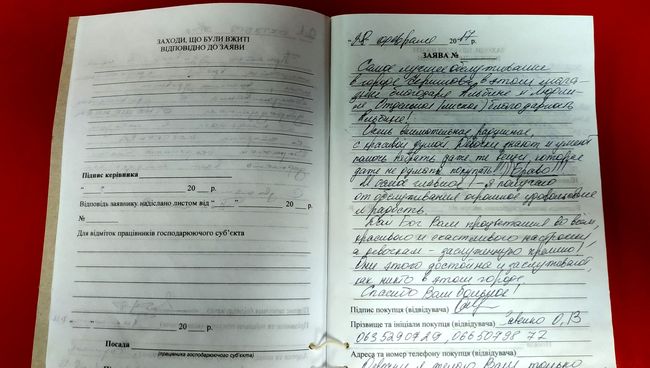 ЗАХОДИ, ЩО БУЛИ ВЖИТІ
ВІДПОВІДНО ДО ЗАЯВИ
Підпис керівника
" " 20 р.
Відповідь заявнику надіслано листом від " " 20 р.
№
Для відміток працівників господарюючого суб'єкта
" " 20 р.
Посада
(працівника господарюючого суб'єкта)
"22" февраля 2017 р.
ЗАЯВА №
Самое лучшее обслуживание
в городе в этом
благодаря Альбине и
Огромная благодарность
Альбине!
Очень внимательная, радушная,
с красивой душой. Девочки знают и умеют
помочь выбрать даже те вещи, которые
даже не думала покупать!!! Браво!!!
А самое главное! – Я получаю
от обслуживания огромное удовольствие
и радость.
Дай Бог Вам процветания во всём,
красивого и счастливого настроения,
а девочкам – заслуженную премию!
Они этого достойны и заслуживают,
как никто в этом городе.
Спасибо Вам большое!
Підпис покупця (відвідувача)
Прізвище та ініціали покупця (відвідувача) О.В
0635290729, 0665079872
Адреса та номер телефону покупця (відвідувача)
Вами только